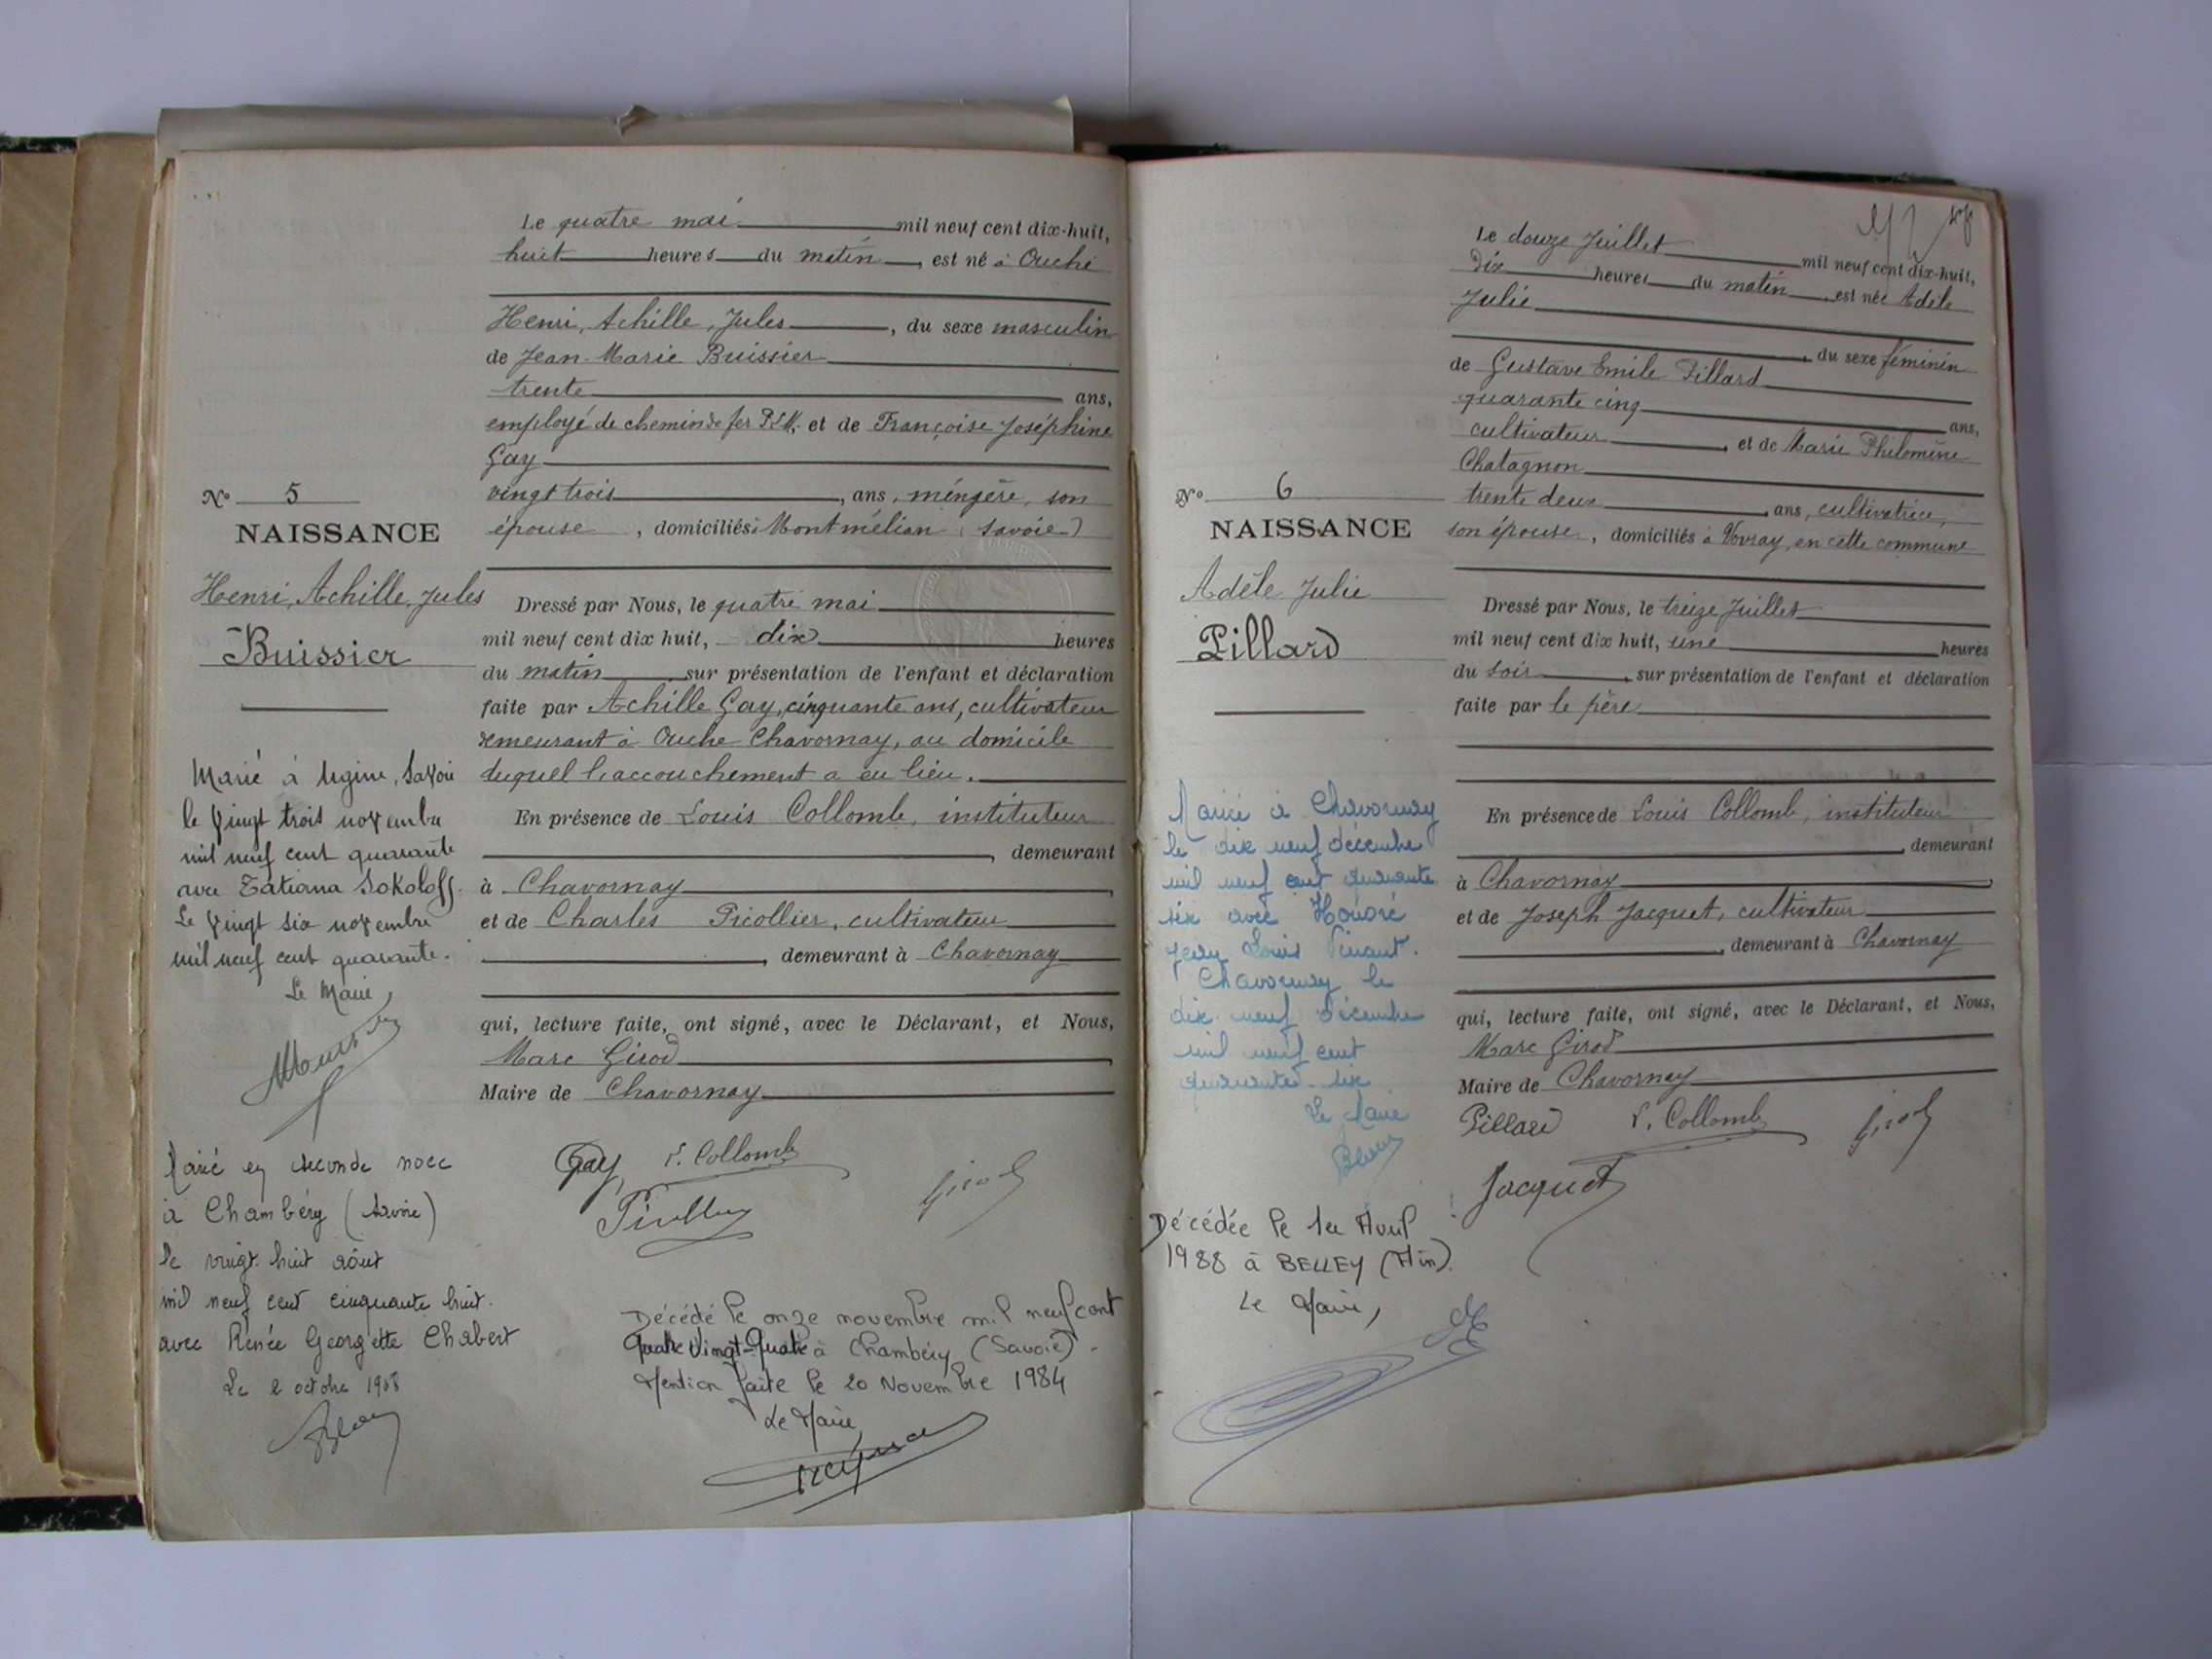 Le quatre mai mil neuf cent dix-huit,
huit heures du matin, est né à Ouche
Henri, Achille, Jules, du sexe masculin
de Jean-Marie Buissier
trente ans,
employé de chemin de fer P.L.M, et de Françoise Joséphine
Gay
vingt trois, ans, ménagère, son
épouse, domiciliés à Montmélian (Savoie)
N° 5
NAISSANCE
Henri, Achille, Jules
Buissier
Dressé par Nous, le quatre mai
mil neuf cent dix huit, dix heures
du matin sur présentation de l'enfant et déclaration
faite par Achille Gay, cinquante ans, cultivateur
demeurant à Ouche Chavornay, au domicile
duquel l'accouchement a eu lieu.
En présence de Louis Collomb, instituteur
, demeurant
à Chavornay,
et de Charles Picollier, cultivateur
, demeurant à Chavornay
qui, lecture faite, ont signé, avec le Déclarant, et Nous,
Marc Girod,
Maire de Chavornay
Gay L. Collomb Girod
Marié à Ugine, Savoie
le vingt trois novembre
mil neuf cent quarante
avec Tatiana Sokoloff.
Le vingt six novembre
mil neuf cent quarante.
Le Maire,
Marié en seconde noce
à Chambéry (Savoie)
le vingt huit août
mil neuf cent cinquante huit.
avec Renée Georgette Chabert
Le 2 octobre 1958
Décédé le onze novembre mil neuf cent
Quatre Vingt-Quatre à Chambéry (Savoie).
Mention faite le 20 Novembre 1984
Le Maire
Le douze Juillet mil neuf cent dix-huit,
Dix heures du matin, est née Adèle
Julie
, du sexe féminin
de Gustave Emile Pillard
quarante cinq ans,
cultivateur, et de Marie Philomène
Chatagnon
trente deux, ans, cultivatrice,
son épouse, domiciliés à Vovray, en cette commune
N° 6
NAISSANCE
Adèle Julie
Pillard
Dressé par Nous, le treize Juillet
mil neuf cent dix huit, une heures
du soir, sur présentation de l'enfant et déclaration
faite par le père
En présence de Louis Collomb, instituteur
, demeurant
à Chavornay,
et de Joseph Jacquet, cultivateur
, demeurant à Chavornay
qui, lecture faite, ont signé, avec le Déclarant, et Nous,
Marc Girod
Maire de Chavornay
Pillard L. Collomb Girod
Jacquet
Mariée à Chavornay
le dix neuf décembre
mil neuf cent quarante
six avec Honoré
Jean Louis
Chavornay le
dix neuf décembre
mil neuf cent
quarante-six
Le Maire
Décédée le 1er Avril
1988 à BELLEY (Ain).
Le Maire,